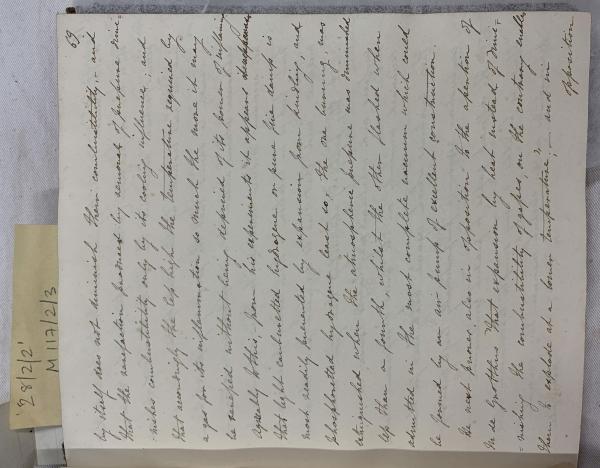 69
by itself does not diminish their combustibility, - and
that the rarefaction produced by removal of pressure dimi-
nishes combustibility only by its cooling influence; and
that accordingly the less high the temperature required by
a gas for its inflammation so much the more it may
be rarefied without being deprived of its power of inflaming
Agreeably to this, from his experiments it appears
that light carburetted hydrogene or pure fire damp is
most easily prevented by expansion from kindling, and
phosphuretted hydrogene least so. The one burning was
extinguished when the atmospheric pressure was diminished
less than a fourth, whilst the other flashed when
admitted in the most complete vacuum which could
be formed by an air pump of excellent construction.
He next proves also in opposition to the assertion of
M de Grotthus "That expansion by heat instead of dimi-
-nishing the combustibility of gases, on the contrary enables
them to explode at a lower temperature"; - and in
opposition
28/2/2'
M 117/2/3